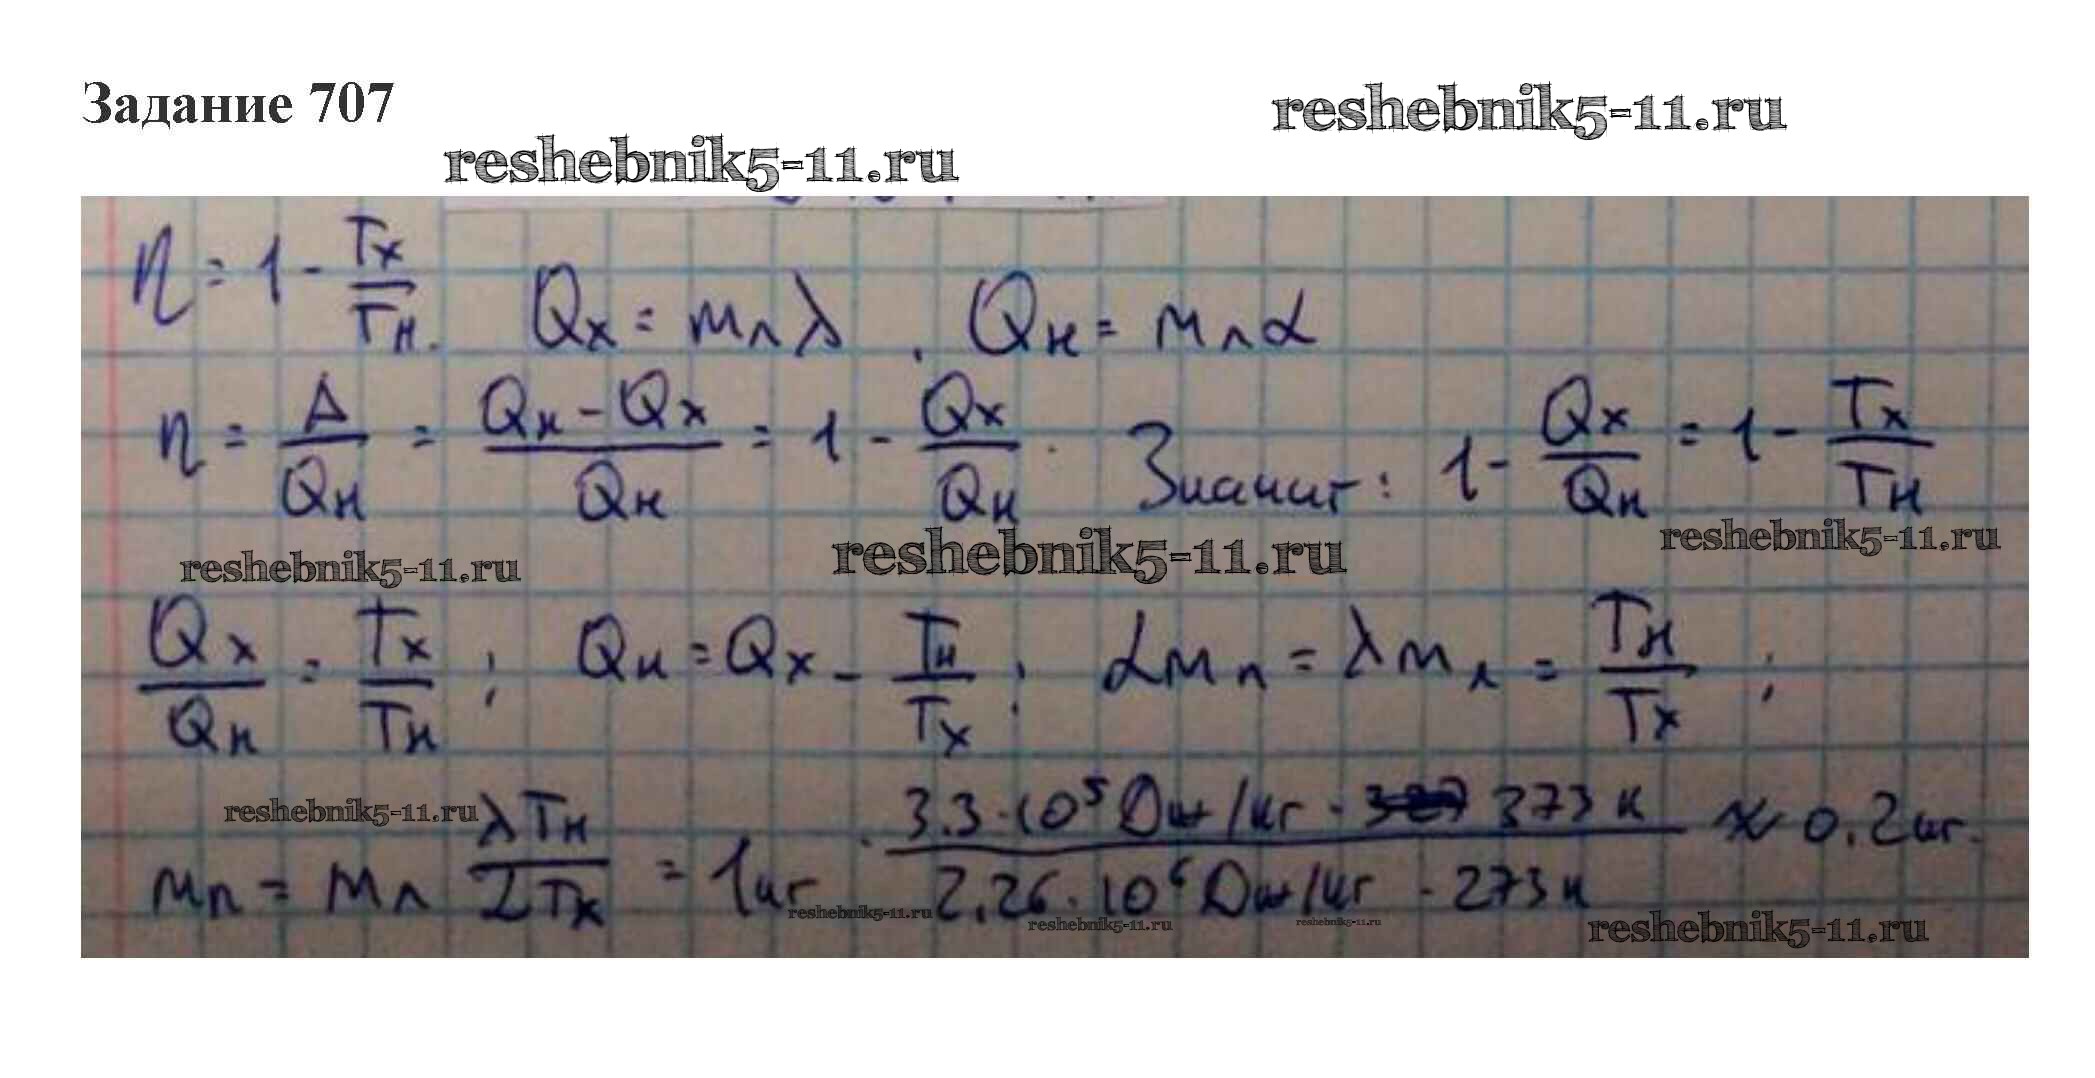 Задание 707
reshebnik5-11.ru
reshebnik5-11.ru
η = 1 - Tх/Tн. Qх = mлλ. Qн = mпα
η = A/Qн = (Qн - Qх)/Qн = 1 - Qх/Qн. Значит: 1 - Qх/Qн = 1 - Tх/Tн
reshebnik5-11.ru reshebnik5-11.ru reshebnik5-11.ru
Qх/Qн = Tх/Tн; Qн = Qх - Tн/Tх; αmп = λmл = Tн/Tх;
reshebnik5-11.ru
mп = mл λTн/αTх = 1кг · 3.3·10⁵ Дж/кг · 373К / 2.26·10⁶ Дж/кг · 273К ≈ 0.2кг.
reshebnik5-11.ru reshebnik5-11.ru reshebnik5-11.ru reshebnik5-11.ru